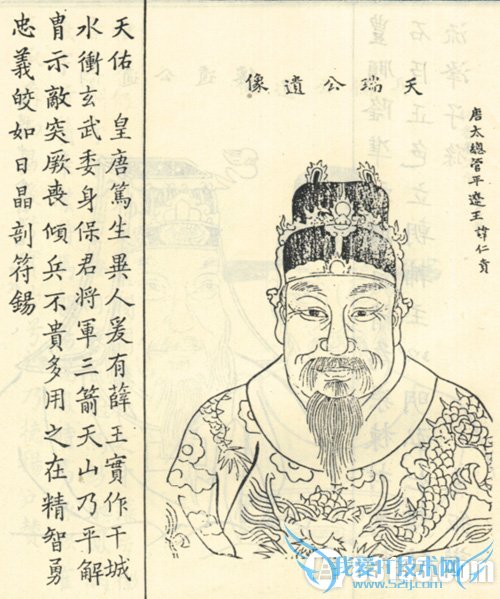 天瑞公遺像
唐太總管平遼王諱仁貴
天佑 皇唐篤生異人爰有薛王實作干城
水衝玄武委身保君將軍三箭天山乃平解
胄示敵突厥喪傾兵不貴多用之在精智勇
忠義皎如日晶剖符錫
我爱IT技术网
www.52ij.com